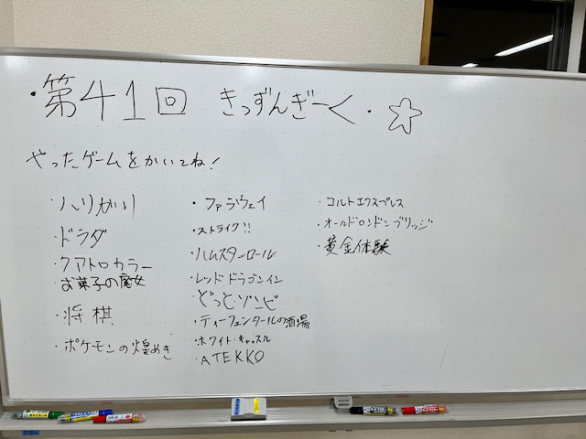 ・第41回 きっずんぎーく・☆
やったゲームをかいてね！
・ハリガリ
・ドラダ
・クアトロカラー
・お菓子の魔女
・将棋
・ポケモンの煌めき
・ファラウェイ
・ストライク!!
・ハムスターロール
・レッドドラゴンイン
・どっと・ゾンビ
・ティーフェンタールの酒場
・ホワイト・キャッスル
・ATEKKO
・コルトエクスプレス
・オールドロンドンブリッジ
・黄金体験